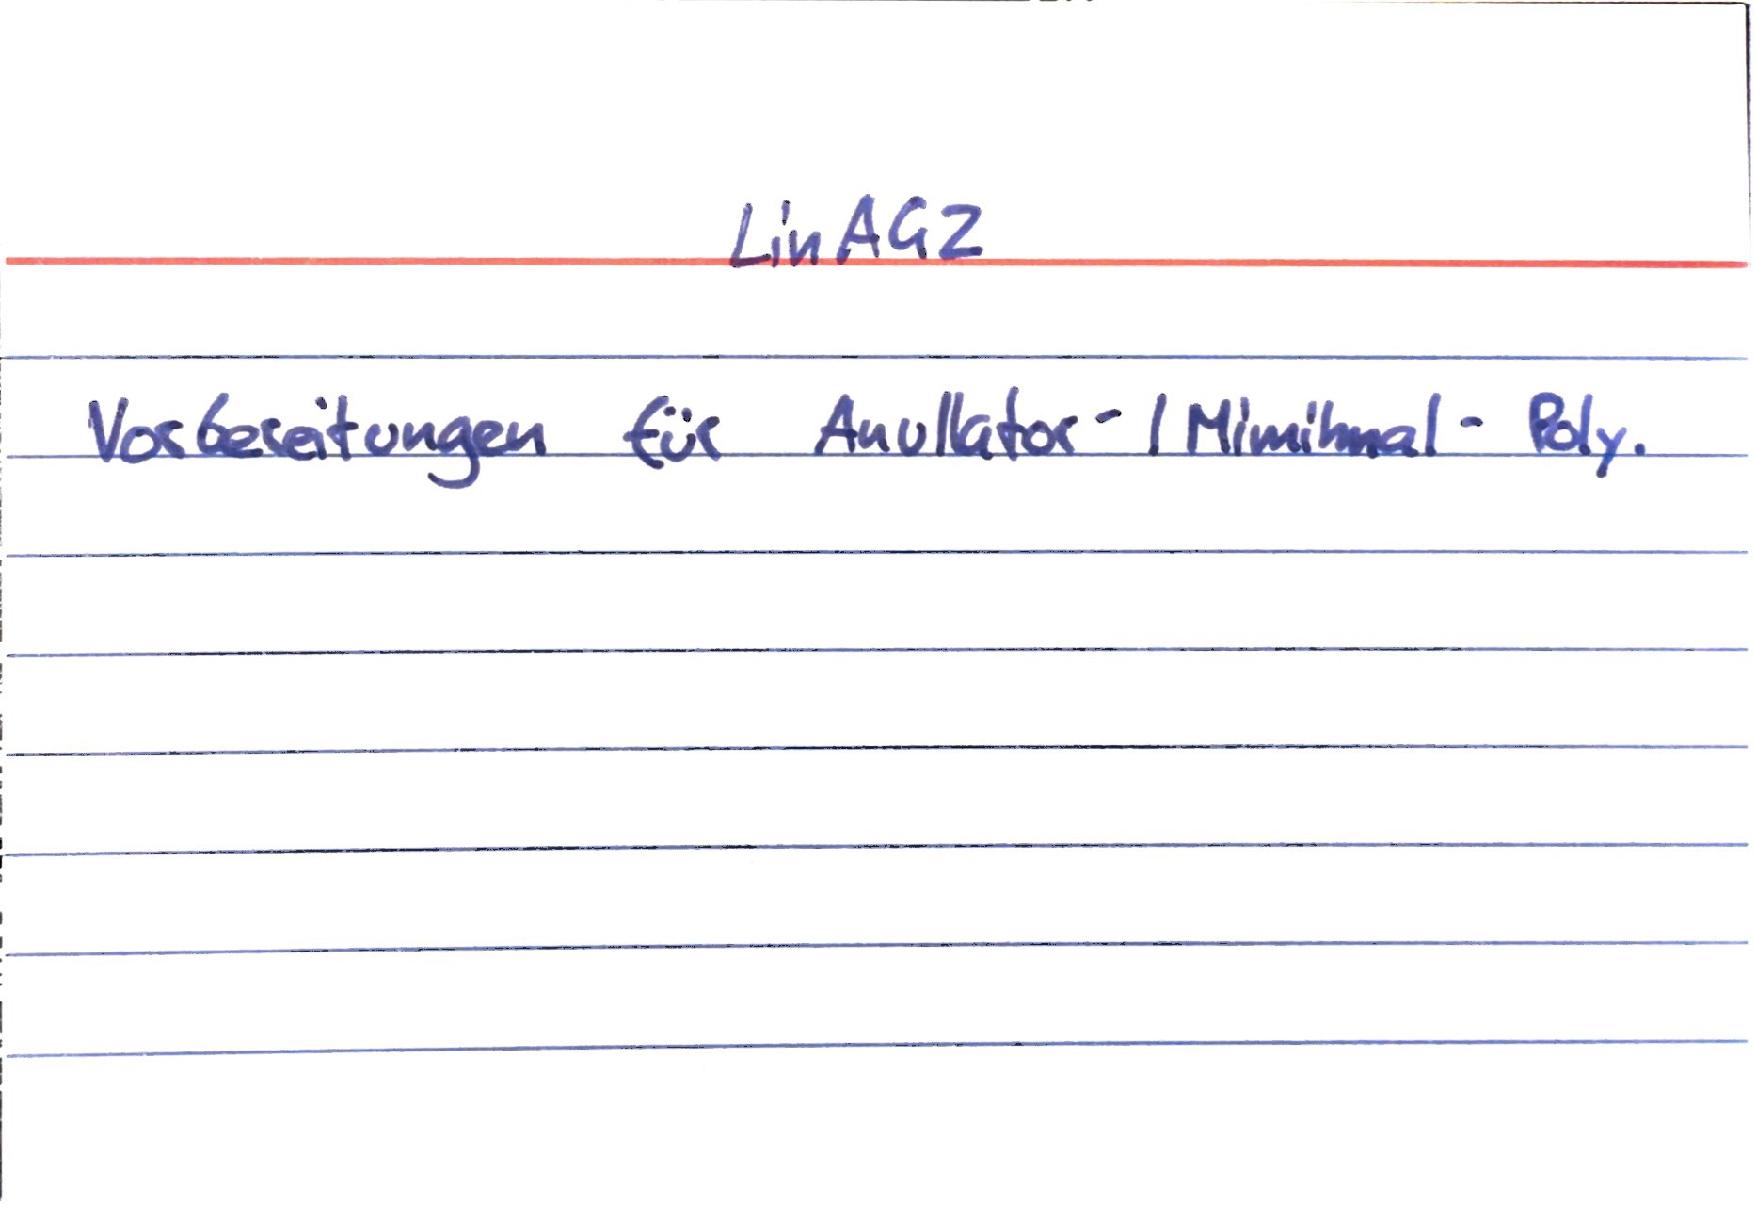 LinAG2
Vorbereitungen für Anullator-/Mimimal-Poly.